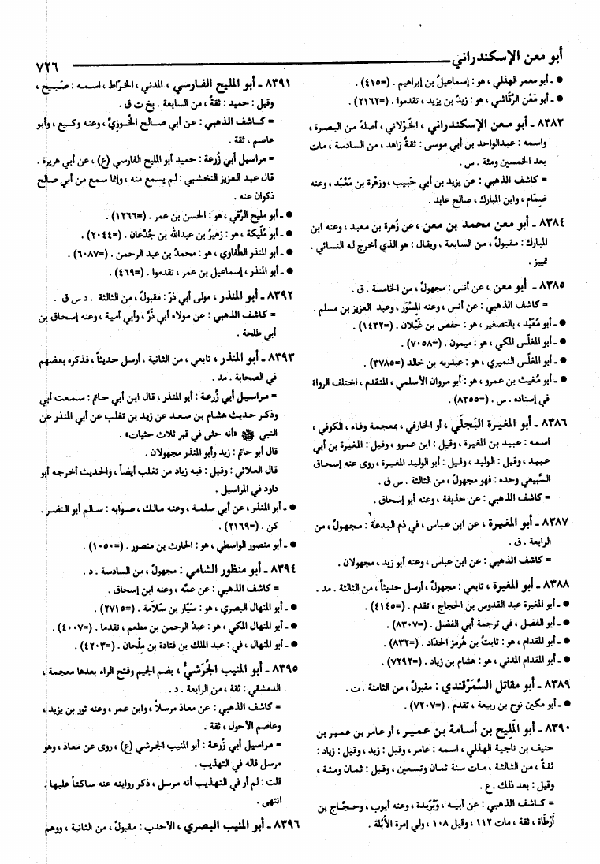 أبو معن الإسكندراني
٧٢٦
● ـ أبو معمر الهذلي ، هو : إسماعيل بن إبراهيم . (=٤١٥).
● ـ أبو معن الرَّقاشي ، هو : زيدُ بن يزيد ، تقدموا . (=٢١٦٢).
٨٣٨٣ ـ أبو معن الإسكندراني ، الخَوْلاني ، أصلُه من البصرة ،
واسمه : عبدالواحد بن أبي موسى : ثقةٌ زاهد ، من السادسة ، مات
بعد الخمسين ومئة . س .
= كاشف الذهبي : عن يزيد بن أبي حَبيب ، وزهْرة بن مَعْبَد ، وعنه
ضِمام ، وابن المبارك ، صالح عابد .
٨٣٨٤ ـ أبو معن محمد بن معن ، عن زُهرة بن معبد ، وعنه ابن
المبارك : مقبولٌ ، من السابعة ، ويقال : هو الذي أخرج له النسائي .
تمييز .
٨٣٨٥ ـ أبو معن ، عن أنس : مجهولٌ ، من الخامسة . ق .
= كاشف الذهبي : عن أنس ، وعنه المِسْوَر ، وعبد العزيز بن مسلم .
● ـ أبو مُعَيْد ، بالتصغير ، هو : حفص بن غَيْلان . (=١٤٣٢).
● ـ أبو المغلِّس المكي ، هو : ميمون . (=٧٠٥٨).
● ـ أبو المغلِّس النميري ، هو : عبدربه بن خالد (=٣٧٨٥).
● ـ أبو مُغيث بن عمرو ، هو : أبو مروان الأسلمي ، المتقدم ، اختلف الرواة
في إسناده . س . (=٨٣٥٥).
٨٣٨٦ ـ أبو المغيرة البَجَلي ، أو الخارفي ، بمعجمة وفاء ، الكوفي ،
اسمه : عبيد بن المغيرة ، وقيل : ابن عمرو ، وقيل : المغيرة بن أبي
عبيد ، وقيل : الوليد ، وقيل : أبو الوليد المغيرة ، روى عنه إسحاق
السَّبيعي وحده : فهو مجهولٌ ، من الثالثة . س ق .
= كاشف الذهبي : عن حذيفة ، وعنه أبو إسحاق .
٨٣٨٧ ـ أبو المغيرة ، عن ابن عباس ، في ذم البدعة : مجهولٌ ، من
الرابعة . ق .
= كاشف الذهبي : عن ابن عباس ، وعنه أبو زيد ، مجهولان .
٨٣٨٨ ـ أبو المغيرة ، تابعي : مجهولٌ ، أرسل حديثاً ، من الثالثة . مد .
● ـ أبو المغيرة عبد القدوس بن الحجاج ، تقدم . (=٤١٤٥).
● ـ أبو المفضل ، في ترجمة أبي الفضل . (=٨٣٠٧).
● ـ أبو المقدام ، هو : ثابتُ بن هُرمز الحدَّاد . (=٨٣٢).
● ـ أبو المقدام المدني ، هو : هشام بن زياد . (=٧٢٩٢).
٨٣٨٩ ـ أبو مقاتل السَّمَرْقَندي : مقبولٌ ، من الثامنة . ت .
● ـ أبو مكين نوح بن ربيعة ، تقدم . (=٧٢٠٧).
٨٣٩٠ ـ أبو المَلِيح بن أسامة بن عمير ، أو عامر بن عمير بن
حنيف بن ناجية الهذلي ، اسمه : عامر ، وقيل : زيد ، وقيل : زياد :
ثقةٌ ، من الثالثة ، مات سنة ثمان وتسعين ، وقيل : ثمان ومئة ،
وقيل : بعد ذلك . ع .
= كاشف الذهبي : عن أبيه ، وبُرَيدة ، وعنه أيوب ، وحجَّاج بن
أرْطاة ، ثقة ، مات ١١٢ ، وقيل ١٠٨ ، ولي إمرة الأُبُلَّة .
٨٣٩١ ـ أبو المليح الفارسي ، المدني ، الخرَّاط ، اسمه : صَبيح ،
وقيل : حميد : ثقةٌ ، من السابعة . بخ ت ق .
= كاشف الذهبي : عن أبي صالح الخُوزيِّ ، وعنه وكيع ، وأبو
عاصم ، ثقة .
= مراسيل أبي زُرعة : حميد أبو المليح الفارسي (ع) ، عن أبي هريرة .
قال عبد العزيز النخشبي : لم يسمع منه ، وإنما سمع من أبي صالح
ذكوان عنه .
● ـ أبو مليح الرَّقِّي ، هو : الحسن بن عمر . (=١٢٦٦).
● ـ أبو مُلَيكة ، هو : زهيرُ بن عبدالله بن جُدْعان . (=٢٠٤٤).
● ـ أبو المنذر الطَّفاوي ، هو : محمدُ بن عبد الرحمن . (=٦٠٨٧).
● ـ أبو المنذر ، إسماعيل بن عمر ، تقدموا . (=٤٦٩).
٨٣٩٢ ـ أبو المنذر ، مولى أبي ذَرّ : مقبولٌ ، من الثالثة . د س ق .
= كاشف الذهبي : عن مولاه أبي ذَرّ ، وأبي أمية ، وعنه إسحاق بن
أبي طلحة .
٨٣٩٣ ـ أبو المنذر ، تابعي ، من الثانية ، أرسل حديثاً ، فذكره بعضهم
في الصحابة . مد .
= مراسيل أبي زُرعة : أبو المنذر ، قال ابن أبي حاتم : سمعت أبي
وذكر حديث هشام بن سعد عن زيد بن تغلب عن أبي المنذر عن
النبي ﷺ «أنه حثى في قبر ثلاث حثيات» .
قال أبو حاتم : زيد وأبو المنذر مجهولان .
قال العلائي : وقيل : فيه زياد من تغلب أيضاً ، والحديث أخرجه أبو
داود في المراسيل .
● ـ أبو المنذر ، عن أبي سلمة ، وعنه مالك ، صوابه : سالم أبو النضر .
كن . (=٢١٦٩).
● ـ أبو منصور الواسطي ، هو : الحارث بن منصور . (=١٠٥٠).
٨٣٩٤ ـ أبو منظور الشامي : مجهولٌ ، من السادسة . د .
= كاشف الذهبي : عن عمِّه ، وعنه ابن إسحاق .
● ـ أبو المنهال البصري ، هو : سَيَّار بن سَلَامة . (=٢٧١٥).
● ـ أبو المنهال المكي ، هو : عبدُ الرحمن بن مطعم ، تقدما . (=٤٠٠٧).
● ـ أبو المنهال ، في : عبد الملك بن قتادة بن مِلْحان . (=٤٢٠٣).
٨٣٩٥ ـ أبو المنيب الجُرَشيُّ ، بضم الجيم وفتح الراء بعدها معجمة ،
الدمشقي : ثقة ، من الرابعة . د .
= كاشف الذهبي : عن معاذ مرسلاً ، وابن عمر ، وعنه ثور بن يزيد ،
وعاصم الأحول ، ثقة .
= مراسيل أبي زُرعة : أبو المنيب الجرشي (ع) ، روى عن معاذ ، وهو
مرسل قاله في التهذيب .
قلت : لم أر في التهذيب أنه مرسل ، ذكر روايته عنه ساكتاً عليها .
انتهى .
٨٣٩٦ ـ أبو المنيب البصري ، الأحدب : مقبولٌ ، من الثانية ، ووهم